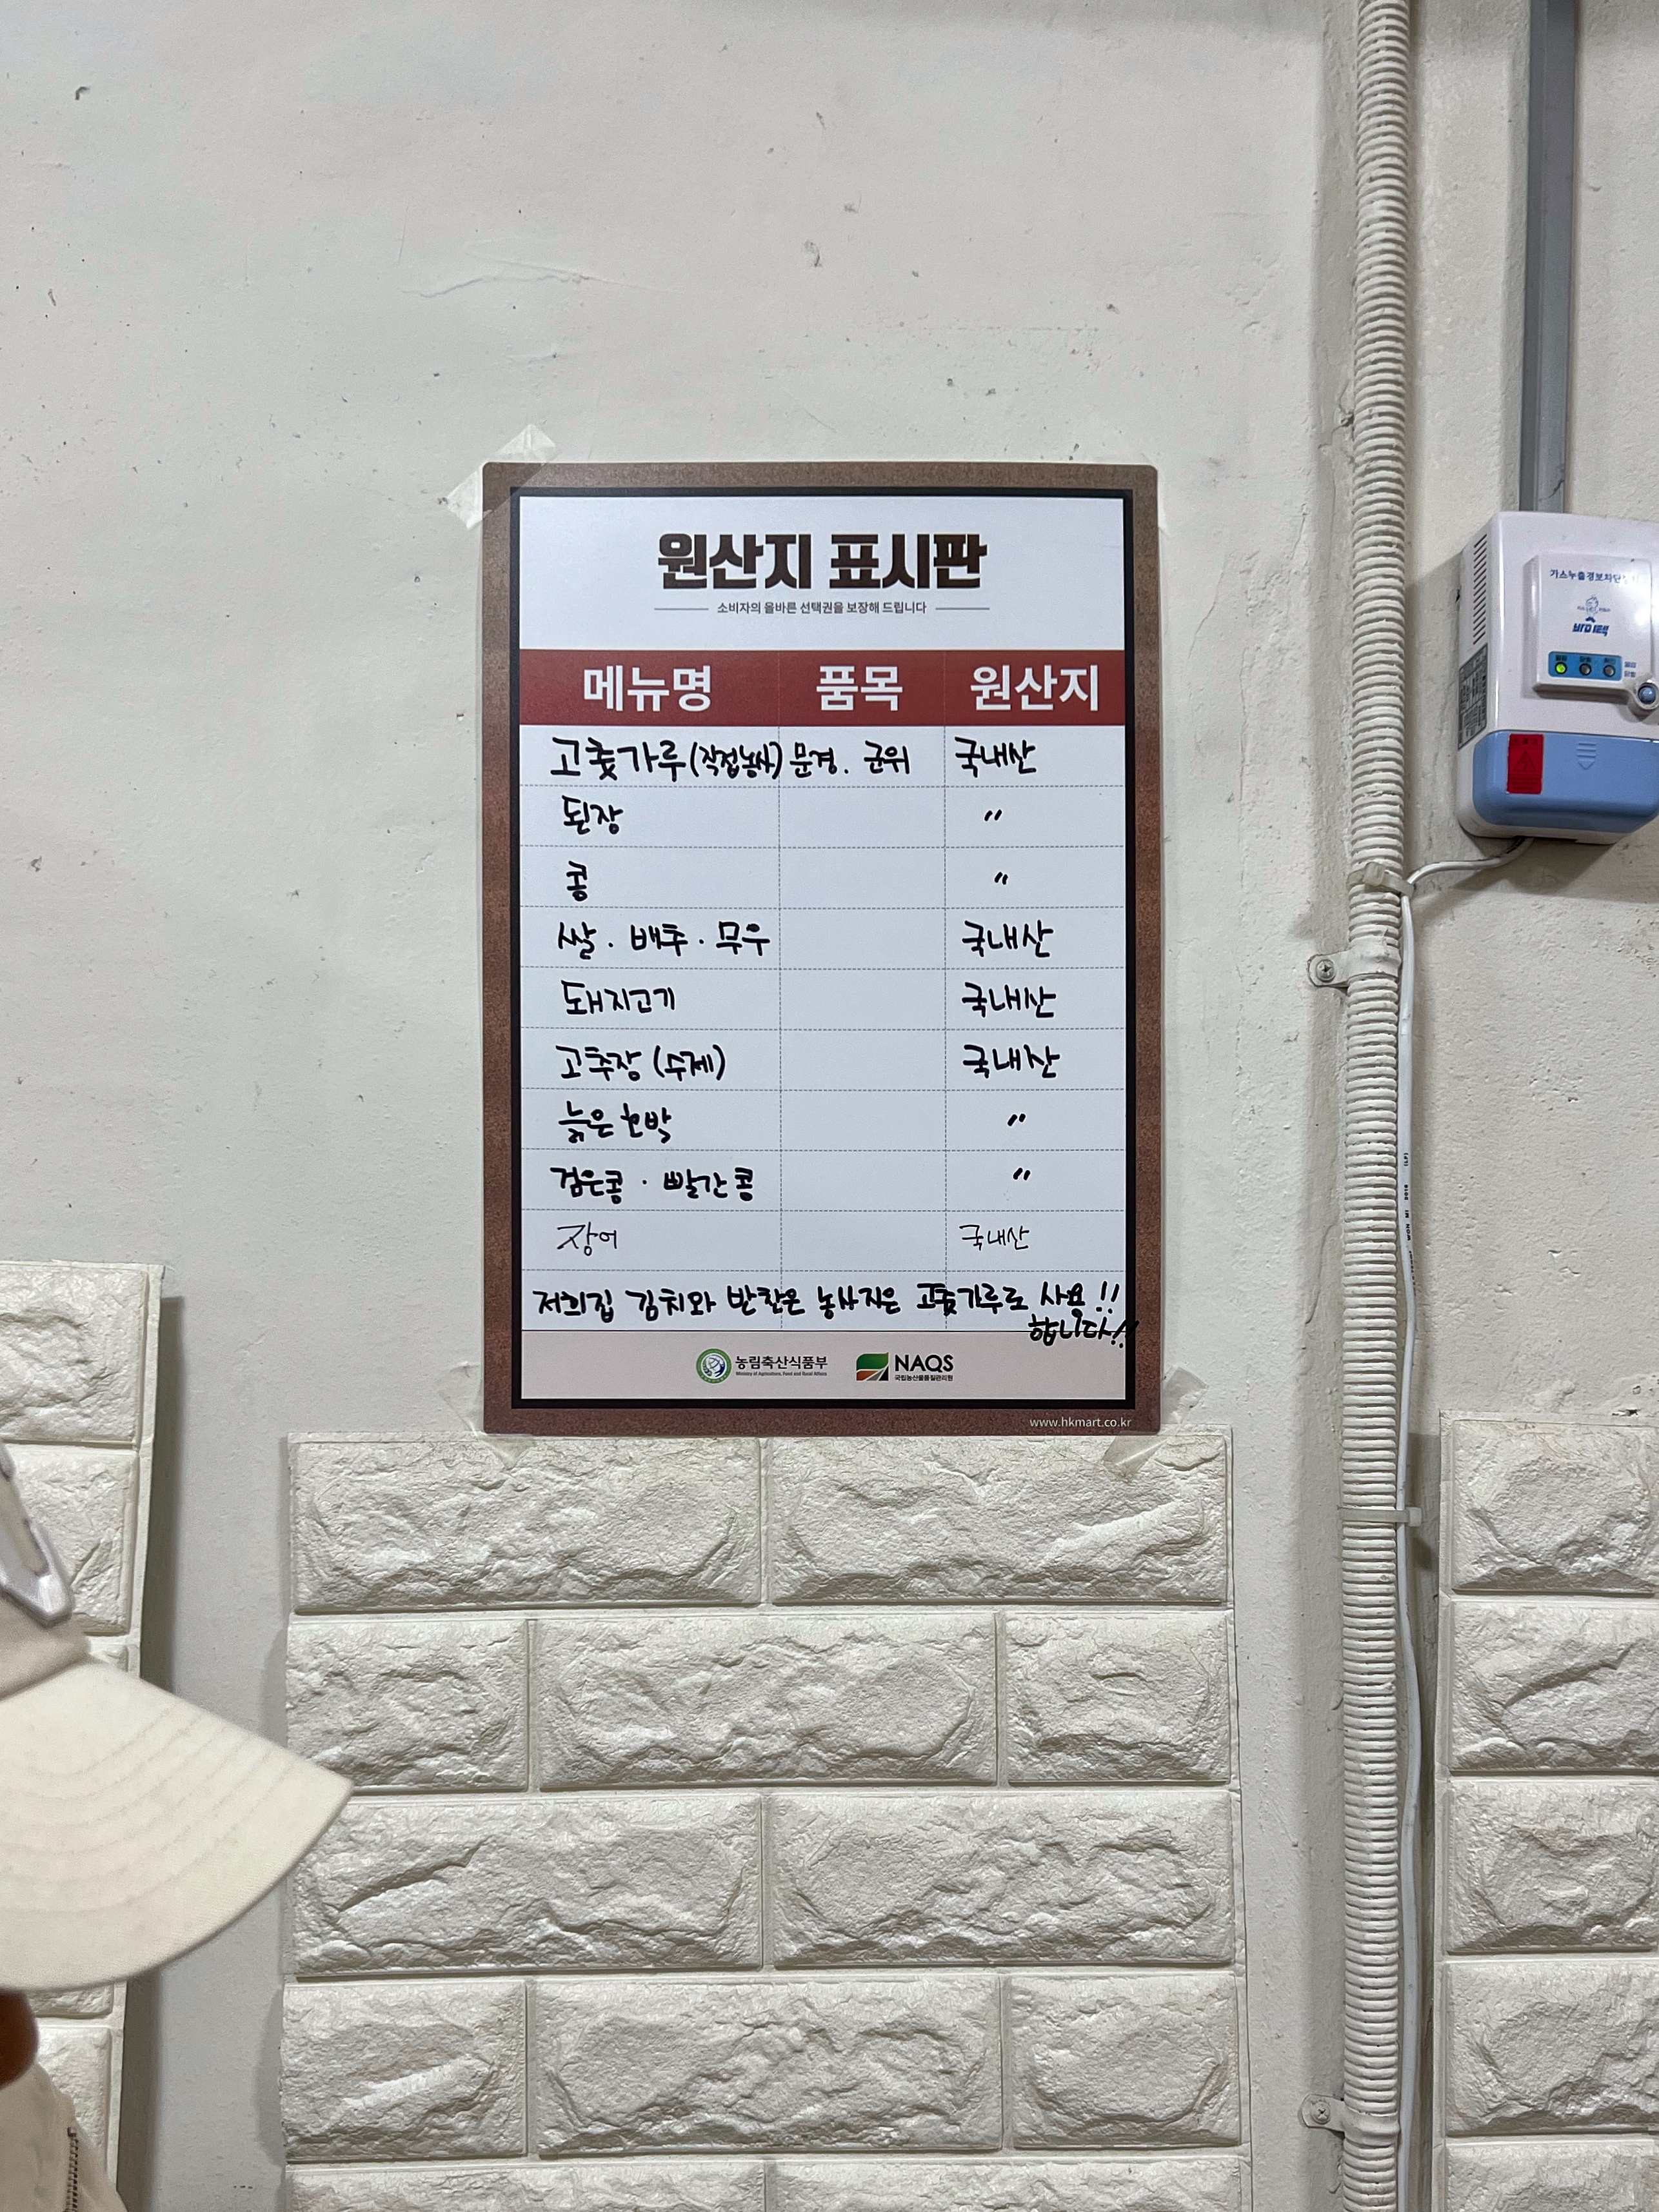 원산지 표시판
소비자의 올바른 선택권을 보장해 드립니다
메뉴명 품목 원산지
고춧가루(직접농사) 문경. 군위 국내산
된장 〃
콩 〃
쌀. 배추. 무우 국내산
돼지고기 국내산
고추장 (수제) 국내산
늙은 호박 〃
검은콩 · 빨간콩 〃
장어 국내산
저희집 김치와 반찬은 농사지은 고춧가루로 사용!!
합니다!!
농림축산식품부 NAQS
Ministry of Agriculture, Food and Rural Affairs 국립농산물품질관리원
www.hkmart.co.kr